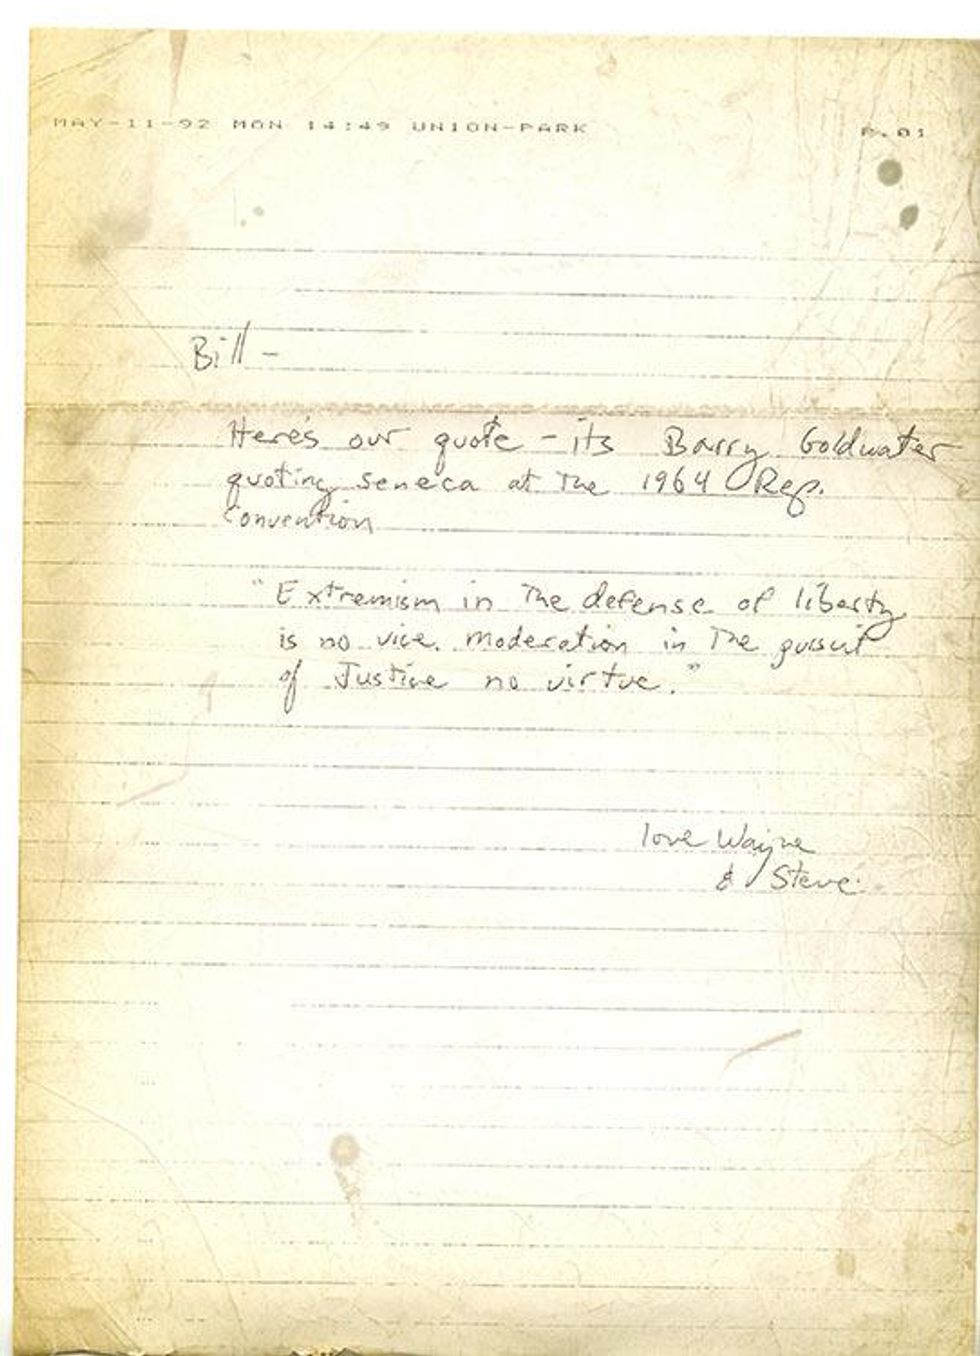 MAY-11-92 MON 14:49 UNION-PARK P.01
Bill -
Heres our quote - its Barry Goldwater
quoting Seneca at The 1964 Rep.
Convention
"Extremism in The defense of liberty
is no vice. moderation in The pursuit
of Justice no virtue."
love Wayne
& Steve